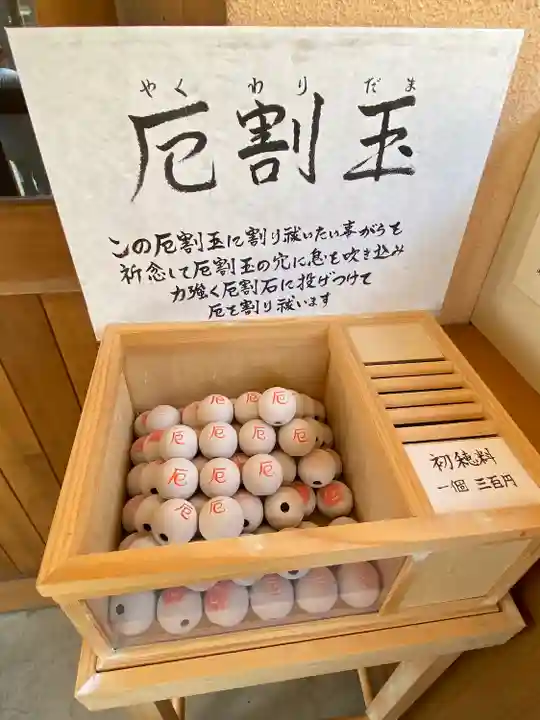 やくわりだま
厄割玉
この厄割玉に割り祓いたい事がらを
祈念して厄割玉の穴に息を吹き込み
力強く厄割石に投げつけて
厄を割り祓います
初穂料
一個 三百円
厄
厄
厄
厄
厄
厄
厄
厄
厄
厄
厄